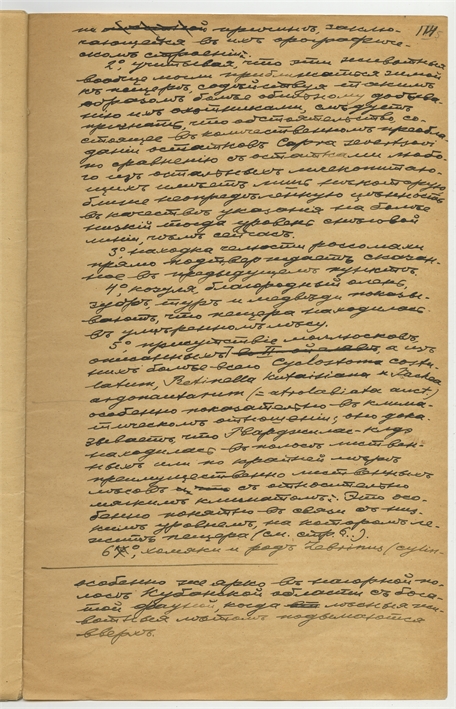 114
причинъ, заклю-
чающейся въ ихъ орографиче-
скомъ строеніи.
2°, учитывая, что эти животныя
вообще могли приближаться зимой
къ пещерѣ, содѣйствуя такимъ
образомъ болѣе обильному добыва-
нію ихъ охотниками, слѣдуетъ
признать, что обстоятельство, со-
стоящее въ количественномъ преобла-
даніи остатковъ Capra severtzovi
по сравненію съ остатками любо-
го изъ остальныхъ млекопитаю-
щихъ имѣетъ лишь нѣкоторую
ближе неопредѣленную цѣнность
въ качествѣ указанія на болѣе
низкій тогда уровень снѣговой
линіи, чѣмъ сейчасъ.
3°, находка челюсти россомахи
прямо подтверждаетъ сказан-
ное въ предыдущемъ пунктѣ.
4°, козуля, благородный олень,
зубръ, туръ и медвѣди показы-
ваютъ, что пещера находилась
въ умѣренномъ лѣсу.
5°, присутствіе моллюсковъ,
описанныхъ а изъ
нихъ болѣе всего Cyclostoma costu-
latum, Retinella kutaisiana и
(= atrolabiata auct.)
особенно показательно въ клима-
тическомъ отношеніи; оно дока-
зываетъ, что Гварджилас-Клдэ
находилась въ полосѣ листвен-
ныхъ или по крайней мѣрѣ
преимущественно лиственныхъ
лѣсовъ съ относительно
мягкимъ климатомъ. Это осо-
бенно понятно въ связи съ низ-
кимъ уровнемъ, на которомъ ле-
житъ пещера (см. стр. ).
6°, хомяки и родъ
особенно же ярко въ нагорной по-
лосѣ Кубанской области съ бога-
той фауной, когда лѣсныя жи-
вотныя лѣтомъ подымаются
вверхъ.